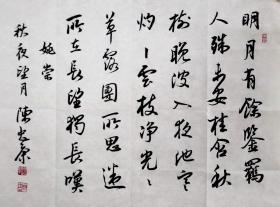 明月有餘鑒羈
人殊未安桂含秋
樹晚波入夜池寒
灼〻雲枝净光〻
草露團所思迷
所在長望獨長嘆
姚崇
秋夜望月 陳忠康